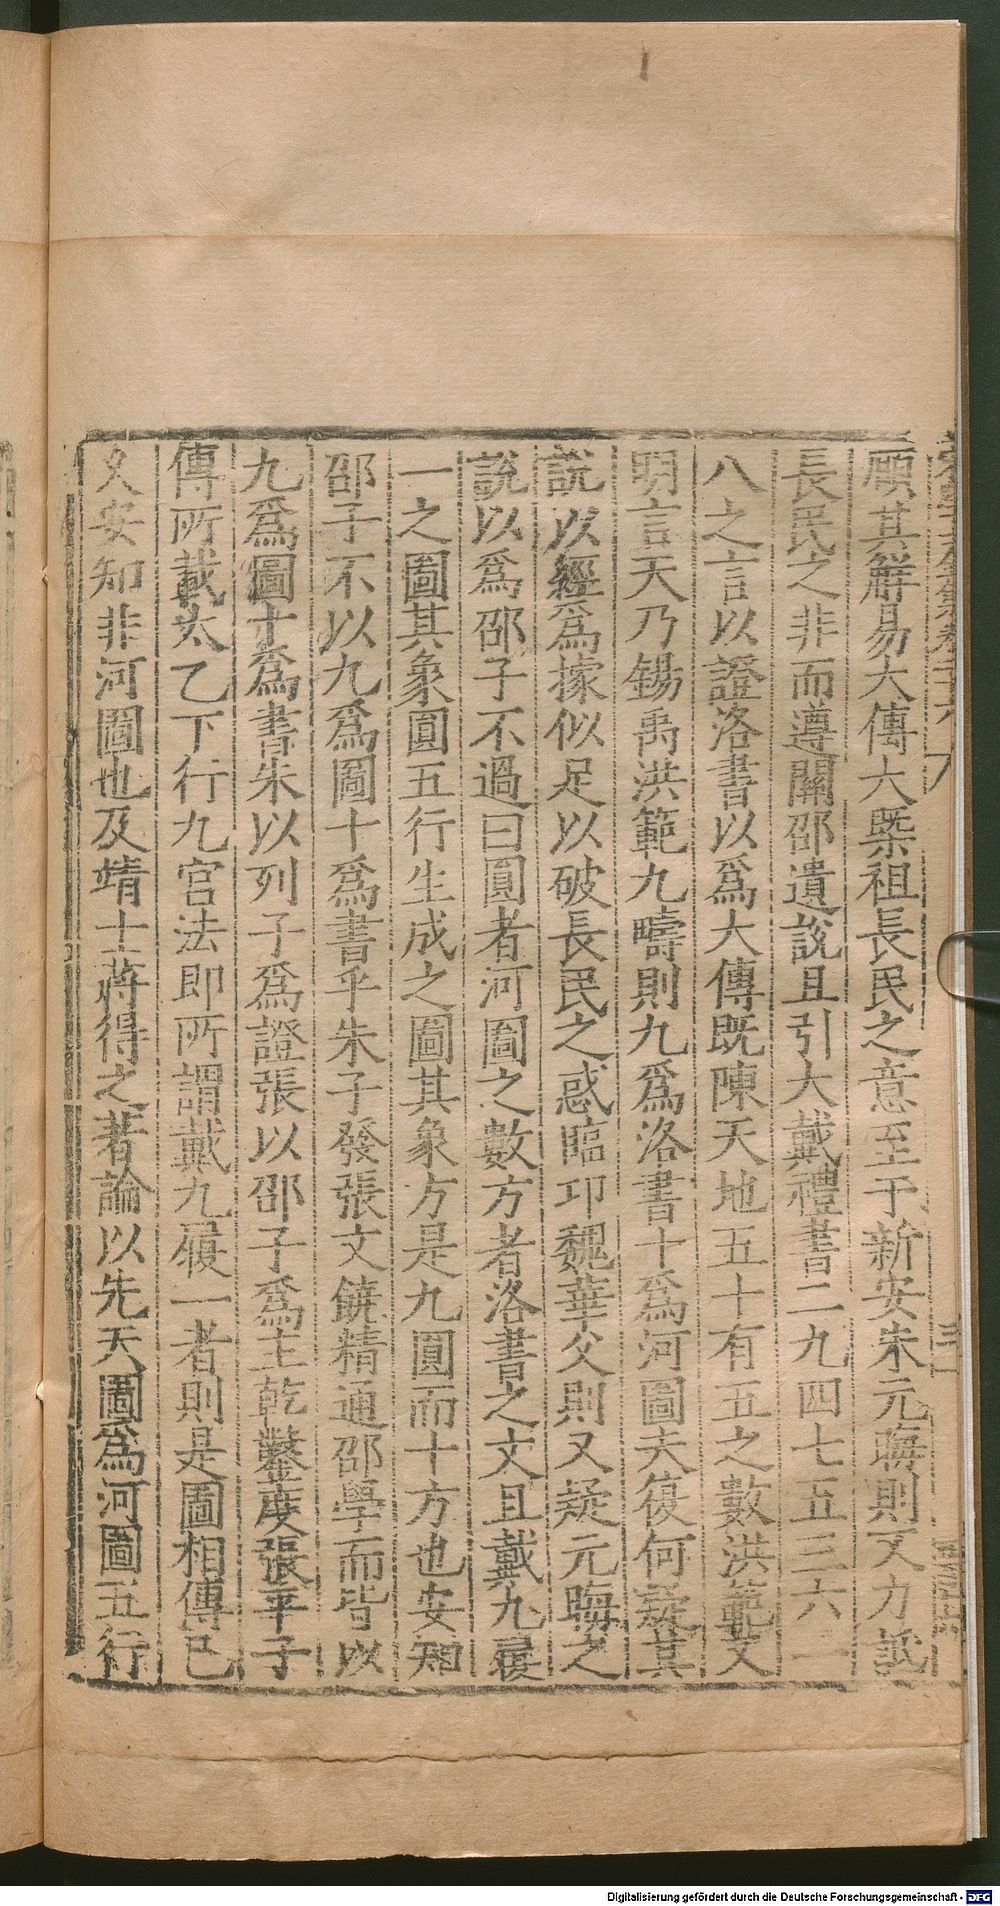 願其解易大傳大槩祖長民之意至于新安朱元晦則又力詆
長民之非而遵關邵遺說且引大戴禮書二九四七五三六一
八之言以證洛書以爲大傳既陳天地五十有五之數洪範又
明言天乃錫禹洪範九疇則九爲洛書十爲河圖夫復何疑其
説以經爲據似足以破長民之惑臨卭魏華父則又疑元晦之
說以爲邵子不過曰圓者河圖之數方者洛書之文且戴九履
一之圖其象圓五行生成之圖其象方是九圓而十方也安知
邵子不以九爲圖十爲書乎朱子發張文饒精通邵學而皆以
九爲圖十爲書朱以列子爲證張以邵子爲主乾鑿度張平子
傳所載太乙下行九宮法即所謂戴九履一者則是圖相傳已
久安知非河圖也及靖士蔣得之著論以先天圖爲河圖五行
Digitalisierung gefördert durch die Deutsche Forschungsgemeinschaft - DFG